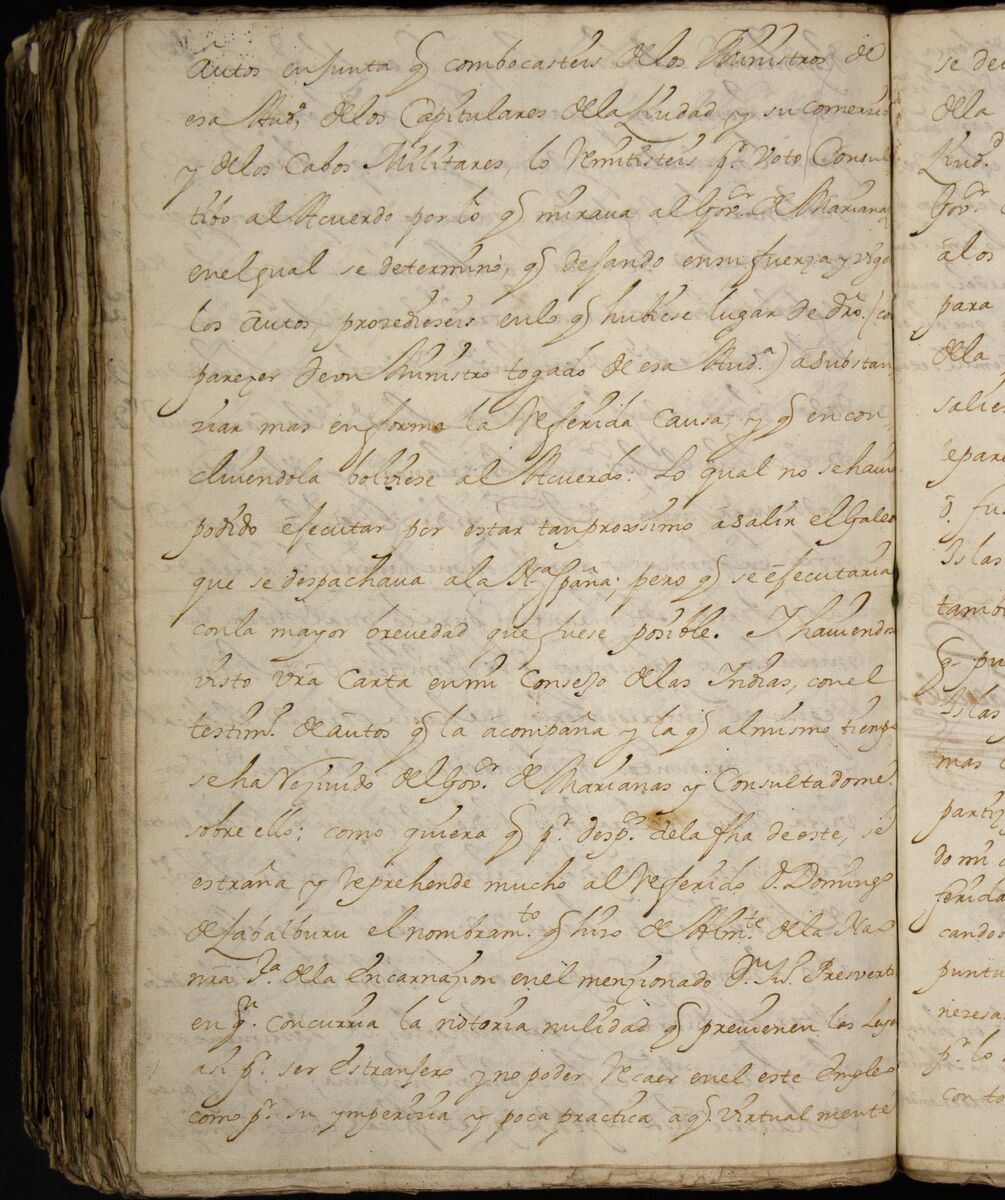 autos en Junta q̃ combocasteis de los Ministros de
esa Aud.ª, de los Capitulares de la Ziudad y su comerzio
y de los Cabos Militares, lo remitisteis p.r Voto Consul-
tibo al Acuerdo por lo q̃ mirava al Gov.or de Marianas
en el qual se determinó, q̃ dejando en su fuerza y vigor
los autos, prozedieseis en lo q̃ hubiese lugar de dr̃o. (co
parezer de un Ministro togado de esa Aud.ª) a substan
ziar mas en forma la referida causa, y q̃ en con-
cluiendola bolviese al Acuerdo: Lo qual no se havia
podido ejecutar por estar tan proximo a salir el Galeo
que se despachava a la N.ª España; pero q̃ se ejecutaria
con la mayor brevedad que fuese posible. Y haviendo
visto vr̃a Carta en mi Consejo de las Indias, con el
testim.º de autos q̃ la acompaña y la q̃ al mismo tiempo
se ha rezivido del Gov.or de Marianas y Consultadome
sobre ello; como quiera q̃ p.r desp.º de la fha de este, se
estraña y reprehende mucho al referido D. Domingo
de Zabalburu el nombram.to q̃ hizo de Alm.te de la Nao
nr̃a S.ª de la Encarnazion en el menzionado
en q.n concurria la notoria nulidad q̃ previenen las Leyes
asi p.r ser Estranjero y no poder recaer en el este Empleo
como p.r su ymperizia y poca practica a q̃ virtualmente
se de
de la
Ziud.
Gov.or
a los
para
de la
salie
Islas
tamb
q̃ pu
Islas
mas
party
do mi
ferida
cando
puntu
nezesa
p.r lo
con to